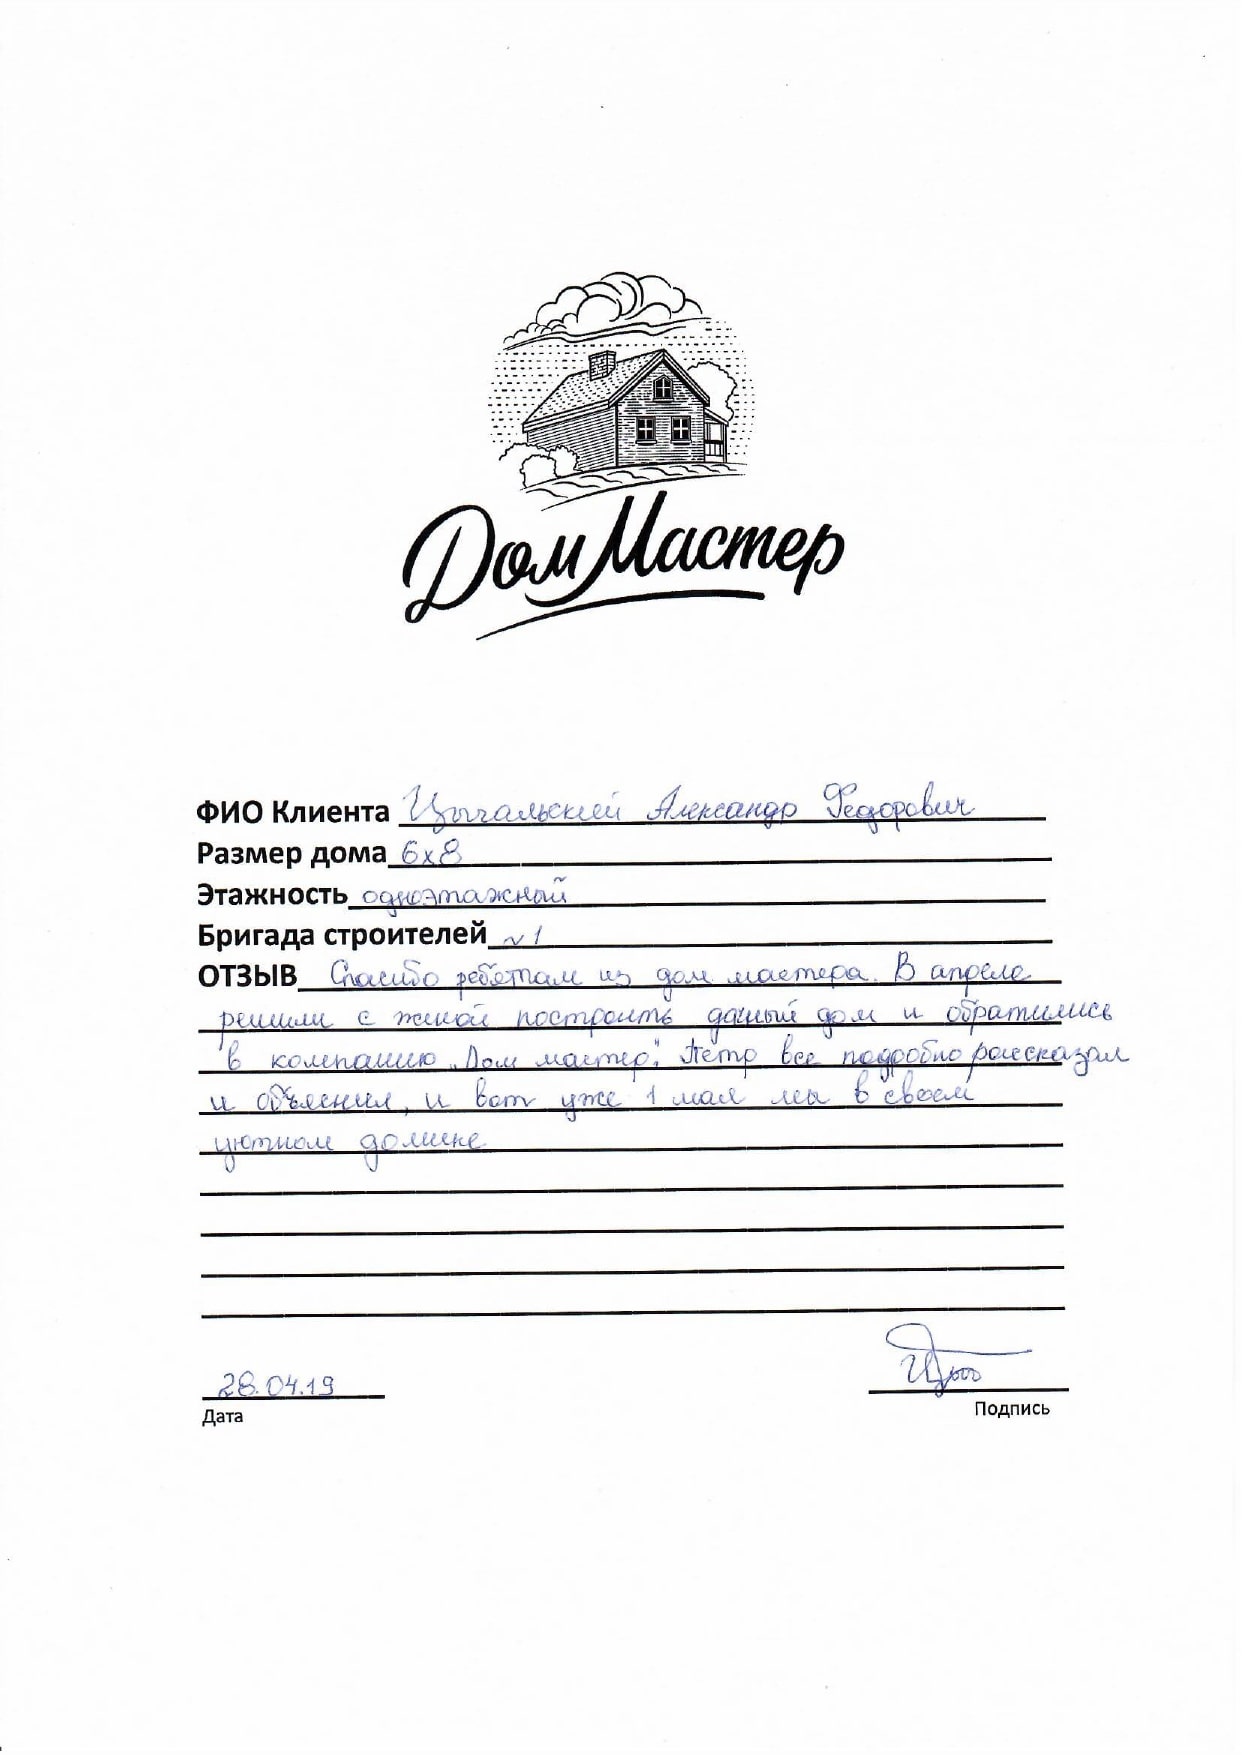 Дом Мастер
ФИО Клиента Цыгальский Александр Федорович
Размер дома 6х8
Этажность одноэтажный
Бригада строителей №1
ОТЗЫВ Спасибо ребятам из дом мастера. В апреле
решили с женой построить дачный дом и обратились
в компанию „Дом мастер". Петр все подробно рассказал
и объяснил, и вот уже 1 мая мы в своем
уютном домике
28.04.19
Дата
Подпись